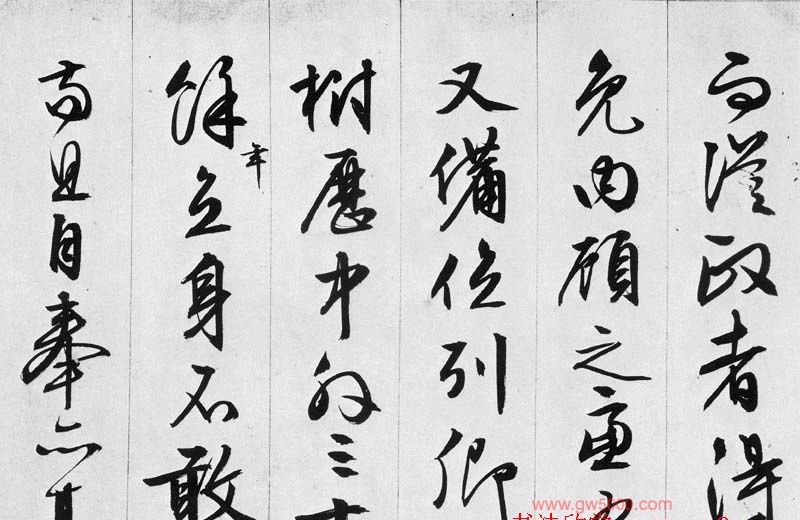 而從政者得
免內顧之
又備位列卿
樹歷中外三十
餘年立身不敢
苟且自奉亦甚